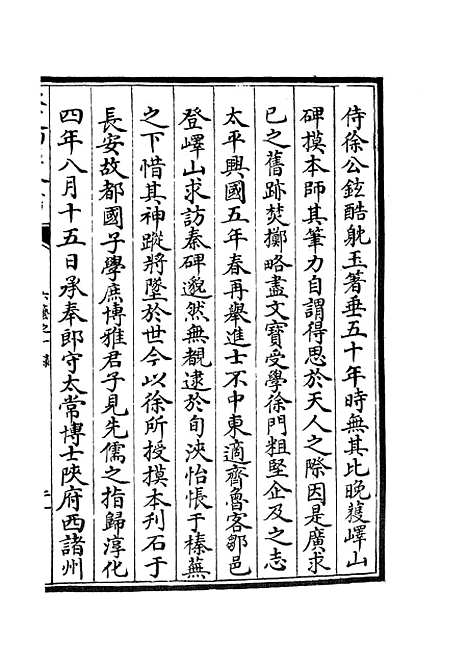 侍徐公鉉酷躭玉著垂五十年時無其比晚獲嶧山
碑摸本師其筆力自謂得思於天人之際因是廣求
已之舊跡焚擲略盡文寶受學徐門粗堅企及之志
太平興國五年春再舉進士不中東適齊魯客鄒邑
登嶧山求訪秦碑邈然無覩逮於旬浹怡悵于榛蕪
之下惜其神蹤將墜於世今以徐所授摸本刋石于
長安故都國子學庶博雅君子見先儒之指歸淳化
四年八月十五日承奉郎守太常博士陝府西諸州
六藝之一錄